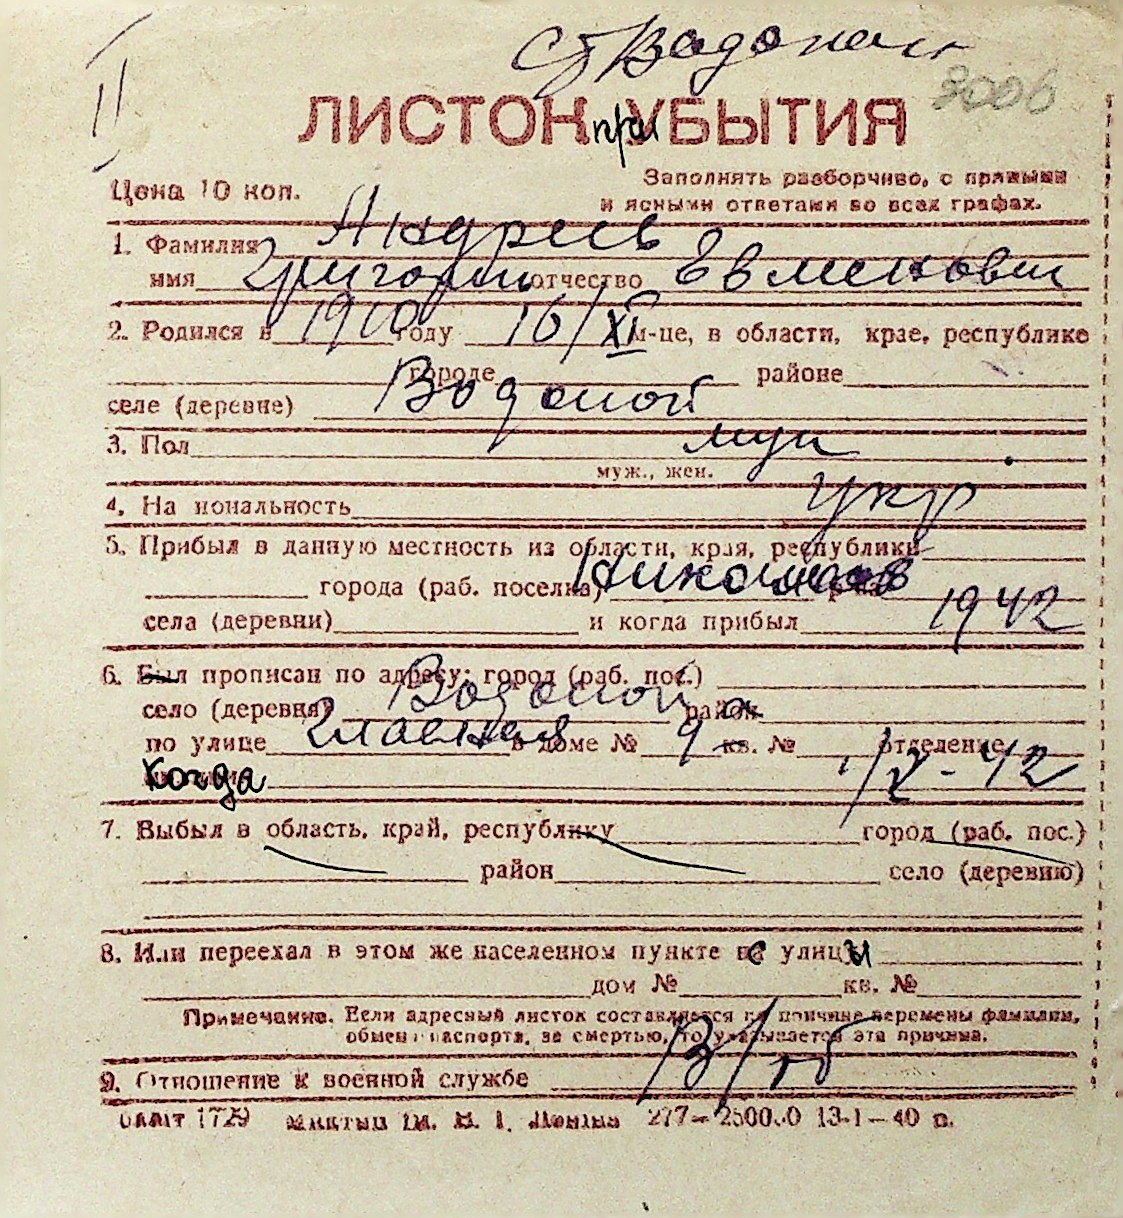 II
ст Водопой
3006
ЛИСТОК при УБЫТИЯ
Цена 10 коп.
Заполнять разборчиво, с прямыми
и ясными ответами во всех графах.
1. Фамилия Андреев
имя Григорий отчество Евменович
2. Родился в 1910 году 16/XI м-це, в области, крае, республике
городе районе
селе (деревне) Водопой
3. Пол муж
муж., жен.
4. Национальность укр
5. Прибыл в данную местность из области, края, республики
города (раб. поселка) Николаев
села (деревни) и когда прибыл 1942
6. Был прописан по адресу: город (раб. пос.)
село (деревня) Водопой район
по улице Главная в доме № 9 кв. № отделение
когда 1/X-42
7. Выбыл в область, край, республику город (раб. пос.)
район село (деревню)
8. Или переехал в этом же населенном пункте с улицы
дом № кв. №
Примечание. Если адресный листок составляется по причине перемены фамилии,
обмена паспорта, за смертью, то указывается эта причина.
9. Отношение к военной службе В/об
1729 277—25000 13-1—40 р.